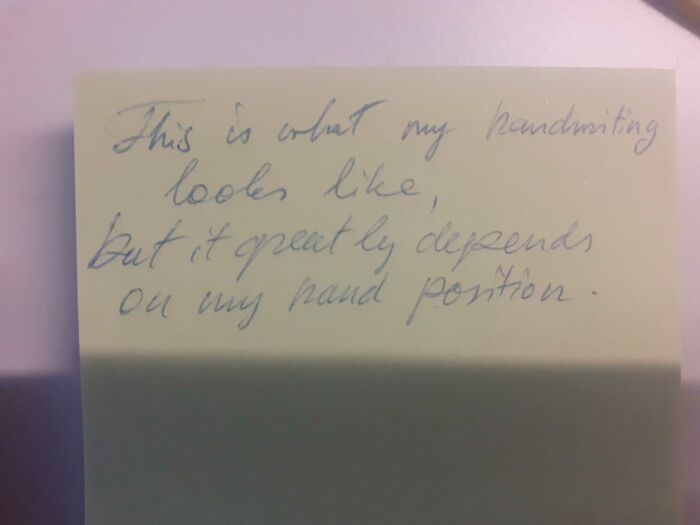 This is what my handwriting
looks like,
but it greatly depends
on my hand position.